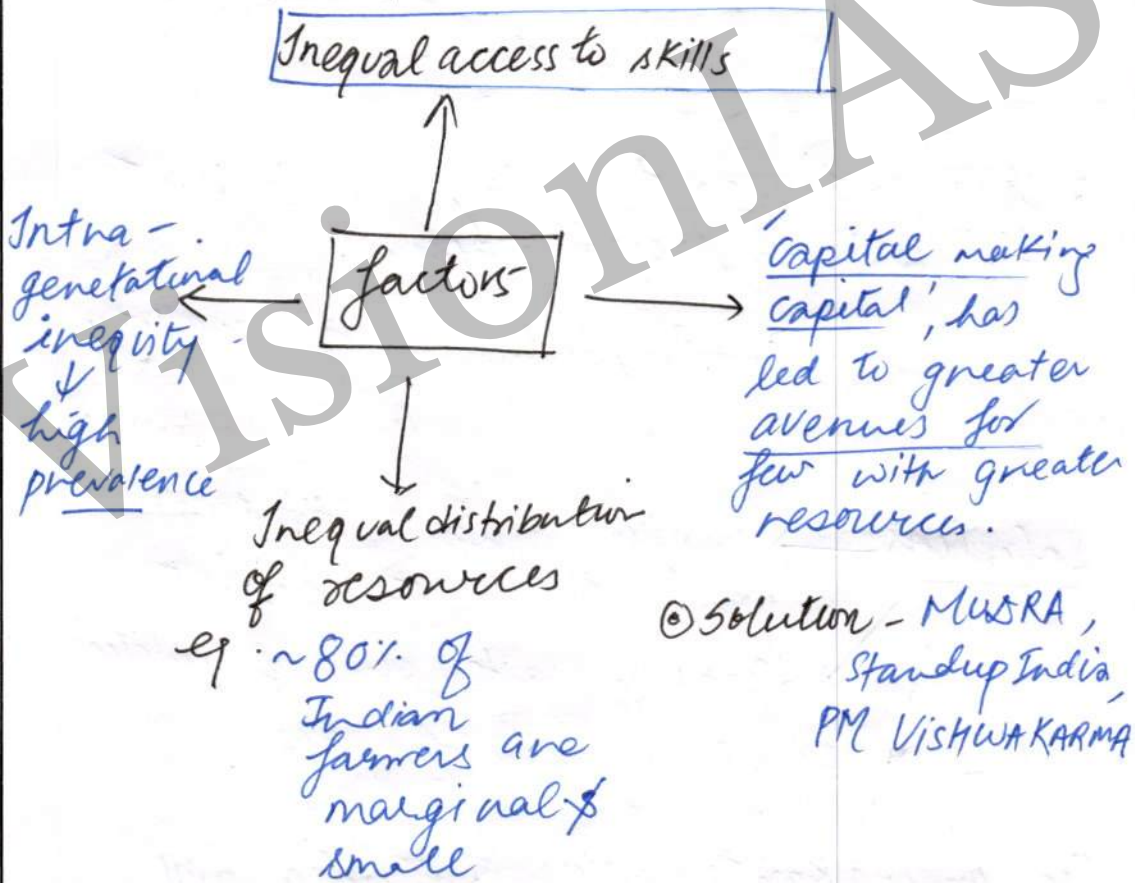 Inequal access to skills
Intra-
generational
inequity
high
prevalence
factors
'Capital making
capital', has
led to greater
avenues for
few with greater
resources.
Inequal distribution
of resources
eg. ~80% of
Indian
farmers are
marginal &
small
Solution - MUDRA,
Standup India,
PM VISHWAKARMA
VisionIAS